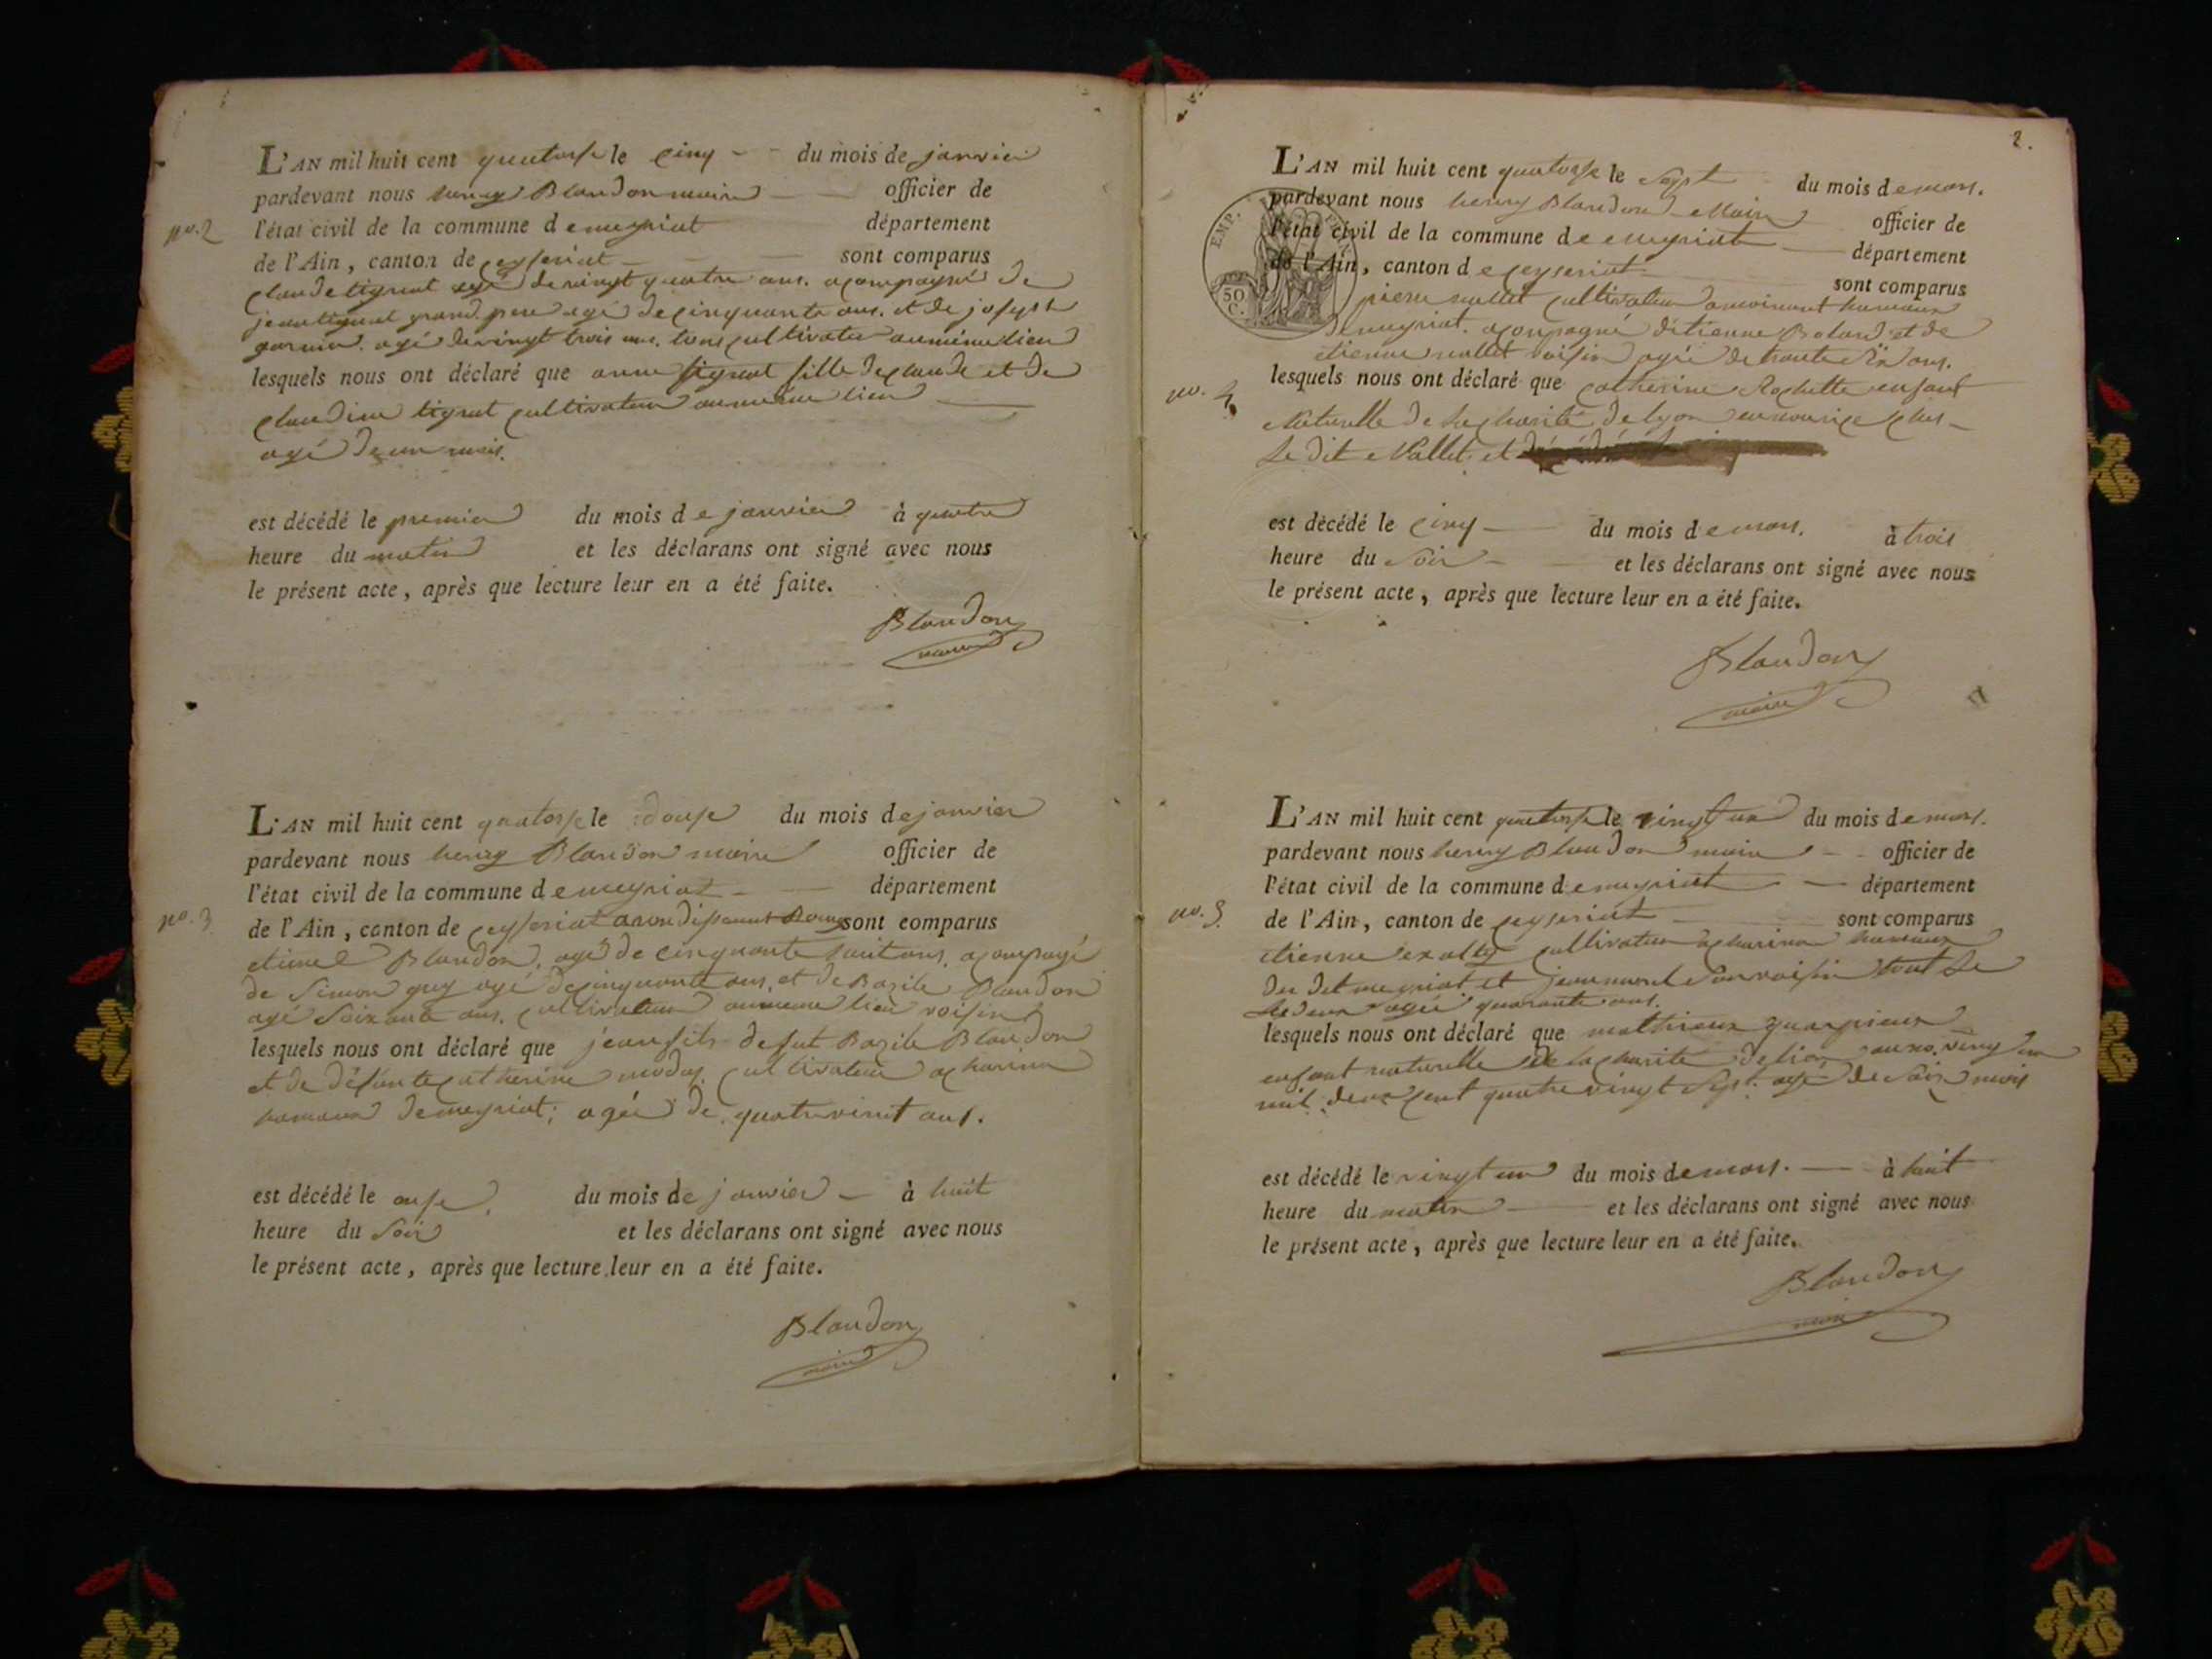 L'AN mil huit cent quatorse le cinq du mois de janvier
pardevant nous henry Blandon maire officier de
no. 2 l'état civil de la commune de meyriat département
de l'Ain, canton de ceyseriat sont comparus
Claude tignat agé de vingt quatre ans. acompagné de
jean tignat grand pere agé de cinquante ans. et de joseph
agé de vingt trois ans. tous cultivater au même lieu
lesquels nous ont déclaré que anne tignat fille de claude et de
claudine tignat cultivateur au même lieu
agé de un mois.
est décédé le premier du mois de janvier à quatre
heure du matin et les déclarans ont signé avec nous
le présent acte, après que lecture leur en a été faite.
Blandon
maire
L'AN mil huit cent quatorse le douse du mois de janvier
pardevant nous henry Blandon maire officier de
l'état civil de la commune de meyriat département
no. 3 de l'Ain, canton de ceyseriat sont comparus
etienne Blandon, agé de cinquante huit ans, acompagé
de Simon guy agé de cinquante ans, et de Bazile Blandon
agé Soixante ans. cultivateur au meme lieu voisin
lesquels nous ont déclaré que jean fils de fut Bazile Blandon
et de défunte catherine cultivateur a charinan
hameau de meyriat; agée de quatrevint ans.
est décédé le onse du mois de janvier à huit
heure du Soir et les déclarans ont signé avec nous
le présent acte, après que lecture leur en a été faite.
Blandon
maire
2.
L'AN mil huit cent quatorse le Sept du mois de mars.
pardevant nous henry Blandon Maire officier de
l'état civil de la commune de meyriat département
de l'Ain, canton de ceyseriat sont comparus
EMP. FRAN.
50 C.
pierre mallet cultivateur hameaux
de meyriat. acompagné d'étienne et de
etienne mallet voisin agée de trante Six ans.
no. 4 lesquels nous ont déclaré que catherine Rochette enfant
Naturelle de la charité de lyon en nourice ches
Le dit Mallet et
est décédé le cinq du mois de mars. à trois
heure du Soir et les déclarans ont signé avec nous
le présent acte, après que lecture leur en a été faite.
Blandon
maire
L'AN mil huit cent quatorse le vingt un du mois de mars.
pardevant nous henry Blandon maire officier de
l'état civil de la commune de meyriat département
no. 5 de l'Ain, canton de ceyseriat sont comparus
etienne cultivateur a charinan hameaux
du dit meyriat et jean son voisin tout Le
Les deux agée quarante ans.
lesquels nous ont déclaré que mathieux
enfant naturelle de la charité de lion au no. vingt un
mil deux cent quatre vingt Sept. agé de mois
est décédé le vingt un du mois de mars. à huit
heure du matin et les déclarans ont signé avec nous
le présent acte, après que lecture leur en a été faite.
Blandon
maire